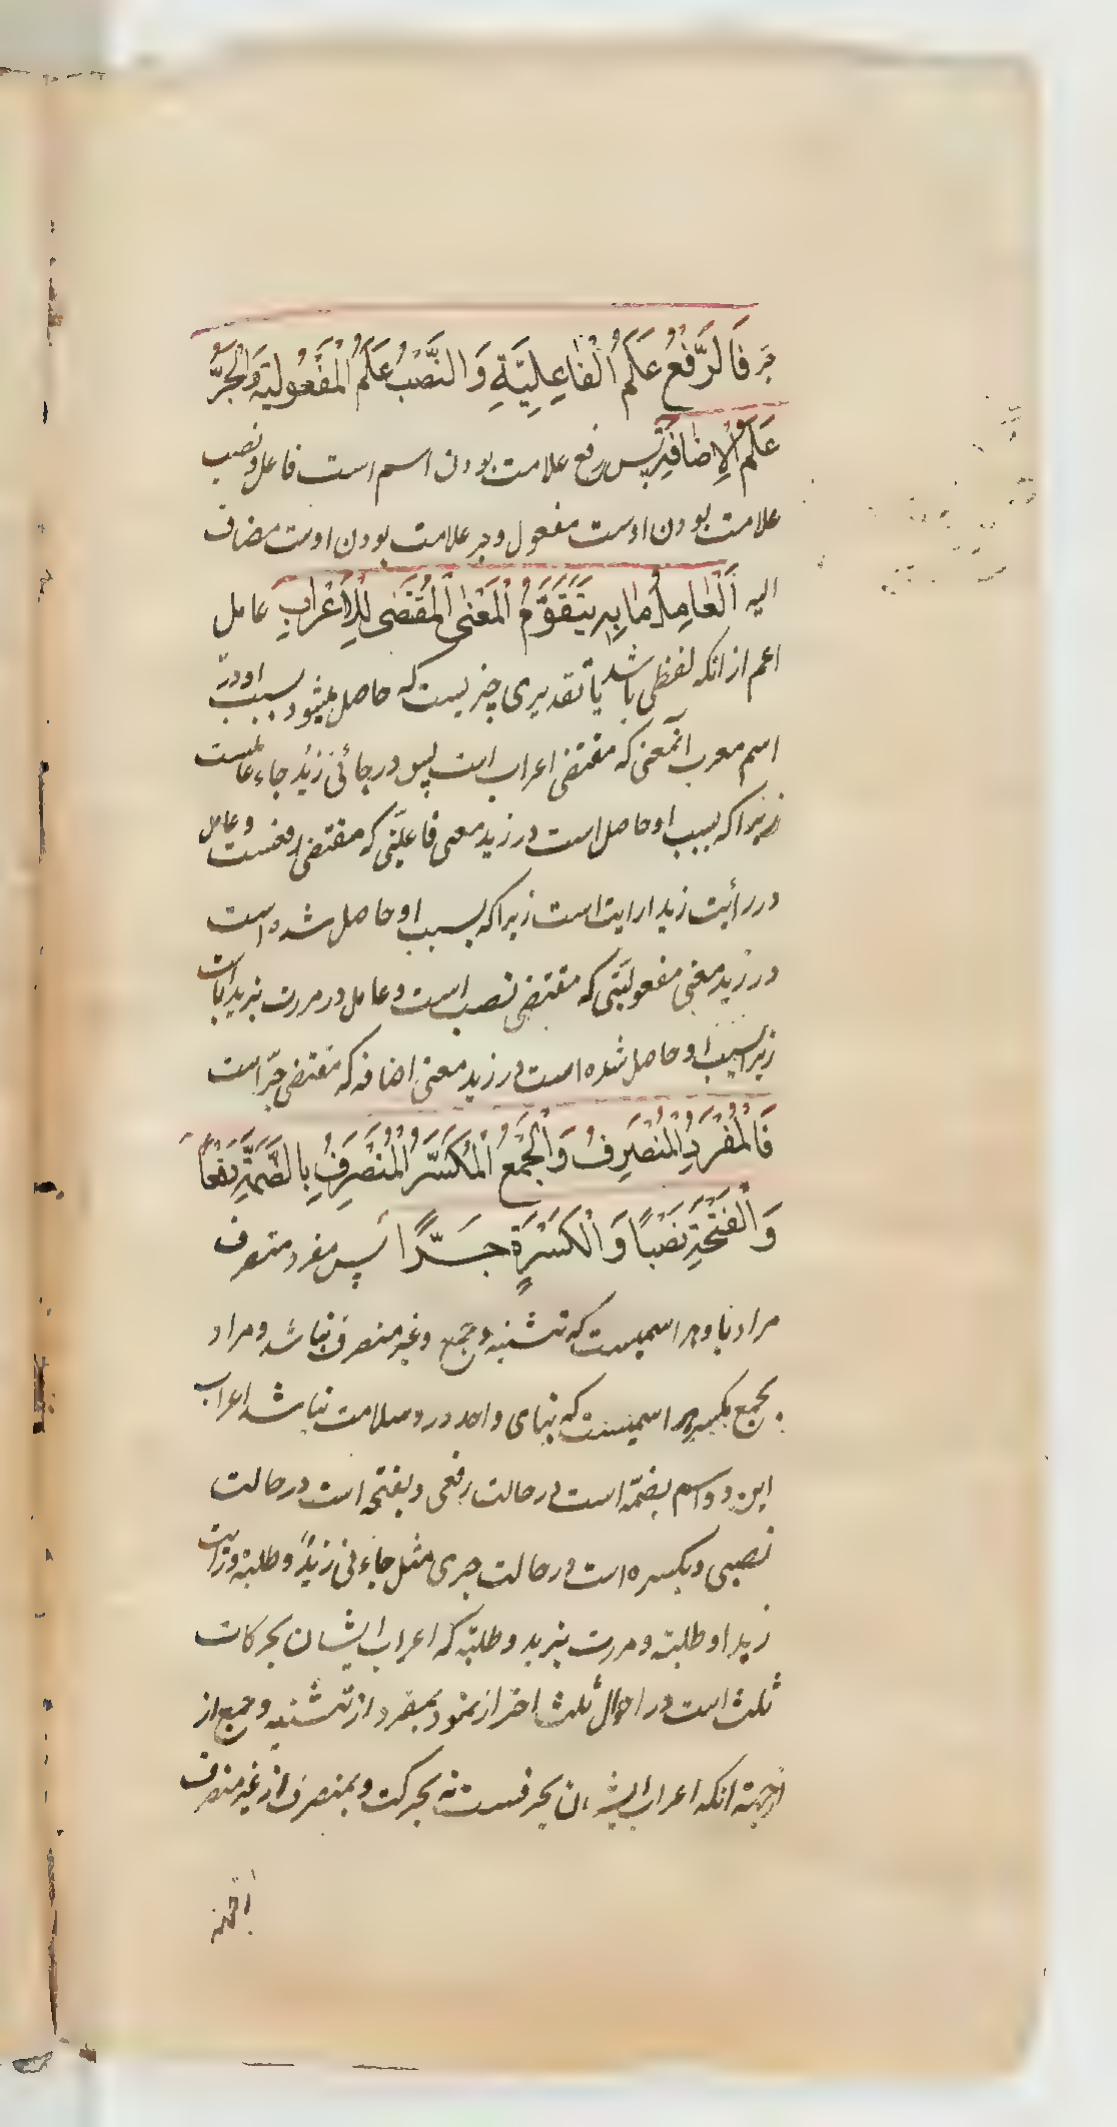 جر فَالرَّفْعُ عَلَمُ الْفَاعِلِيَّةِ وَالنَّصْبُ عَلَمُ الْمَفْعُولِيَّةِ وَالْجَرُّ
عَلَمُ الْاِضَافَةِ پس رفع علامت بودن اسم است فاعل و نصب
علامت بودن اوست مفعول و جر علامت بودن اوست مضاف
الیه اَلْعَامِلُ مَا بِهِ يَتَقَوَّمُ الْمَعْنَى الْمُقْتَضِى لِلْاِعْرَابِ عامل
اعم از انکه لفظی باشد یا تقدیری چیزیست که حاصل میشود بسبب او در
اسم معرب آنمعنی که مقتضی اعراب است پس در جائنی زیدٌ جاء عاملست
زیرا که بسبب او حاصل است در زید معنی فاعلیّتی که مقتضی رفعست و عامل
در رأیت زیدا رایت است زیرا که بسبب او حاصل شده است
در زید معنی مفعولیّتی که مقتضی نصب است و عامل در مررت بزید با است
زیرا بسبب او حاصل شده است در زید معنی اضافه که مقتضی جرّ است
فَالْمُفْرَدُ الْمُنْصَرِفُ وَالْجَمْعُ الْمُكَسَّرُ الْمُنْصَرِفُ بِالضَّمَّةِ رَفْعًا
وَالْفَتْحَةِ نَصْبًا وَالْكَسْرَةِ جَرًّا پس مفرد منصرف
مراد باو هر اسمیست که تثنیه و جمع و غیر منصرف نباشد و مراد
بجمع مکسر هر اسمیست که بنای واحد در و سلامت نباشد اعراب
این دو اسم بضمّه است در حالت رفعی و بفتحه است در حالت
نصبی و بکسره است در حالت جری مثل جاءنی زیدٌ و طلبة و رایت
زیدا و طلبة و مررت بزید و طلبة که اعراب ایشان بحرکات
ثلث است در احوال ثلث احتراز نمود بمفرد از تثنیه و جمع از
انجهة انکه اعراب ایشان بحرفست نه بحرکت و بمنصرف از غیر منصرف